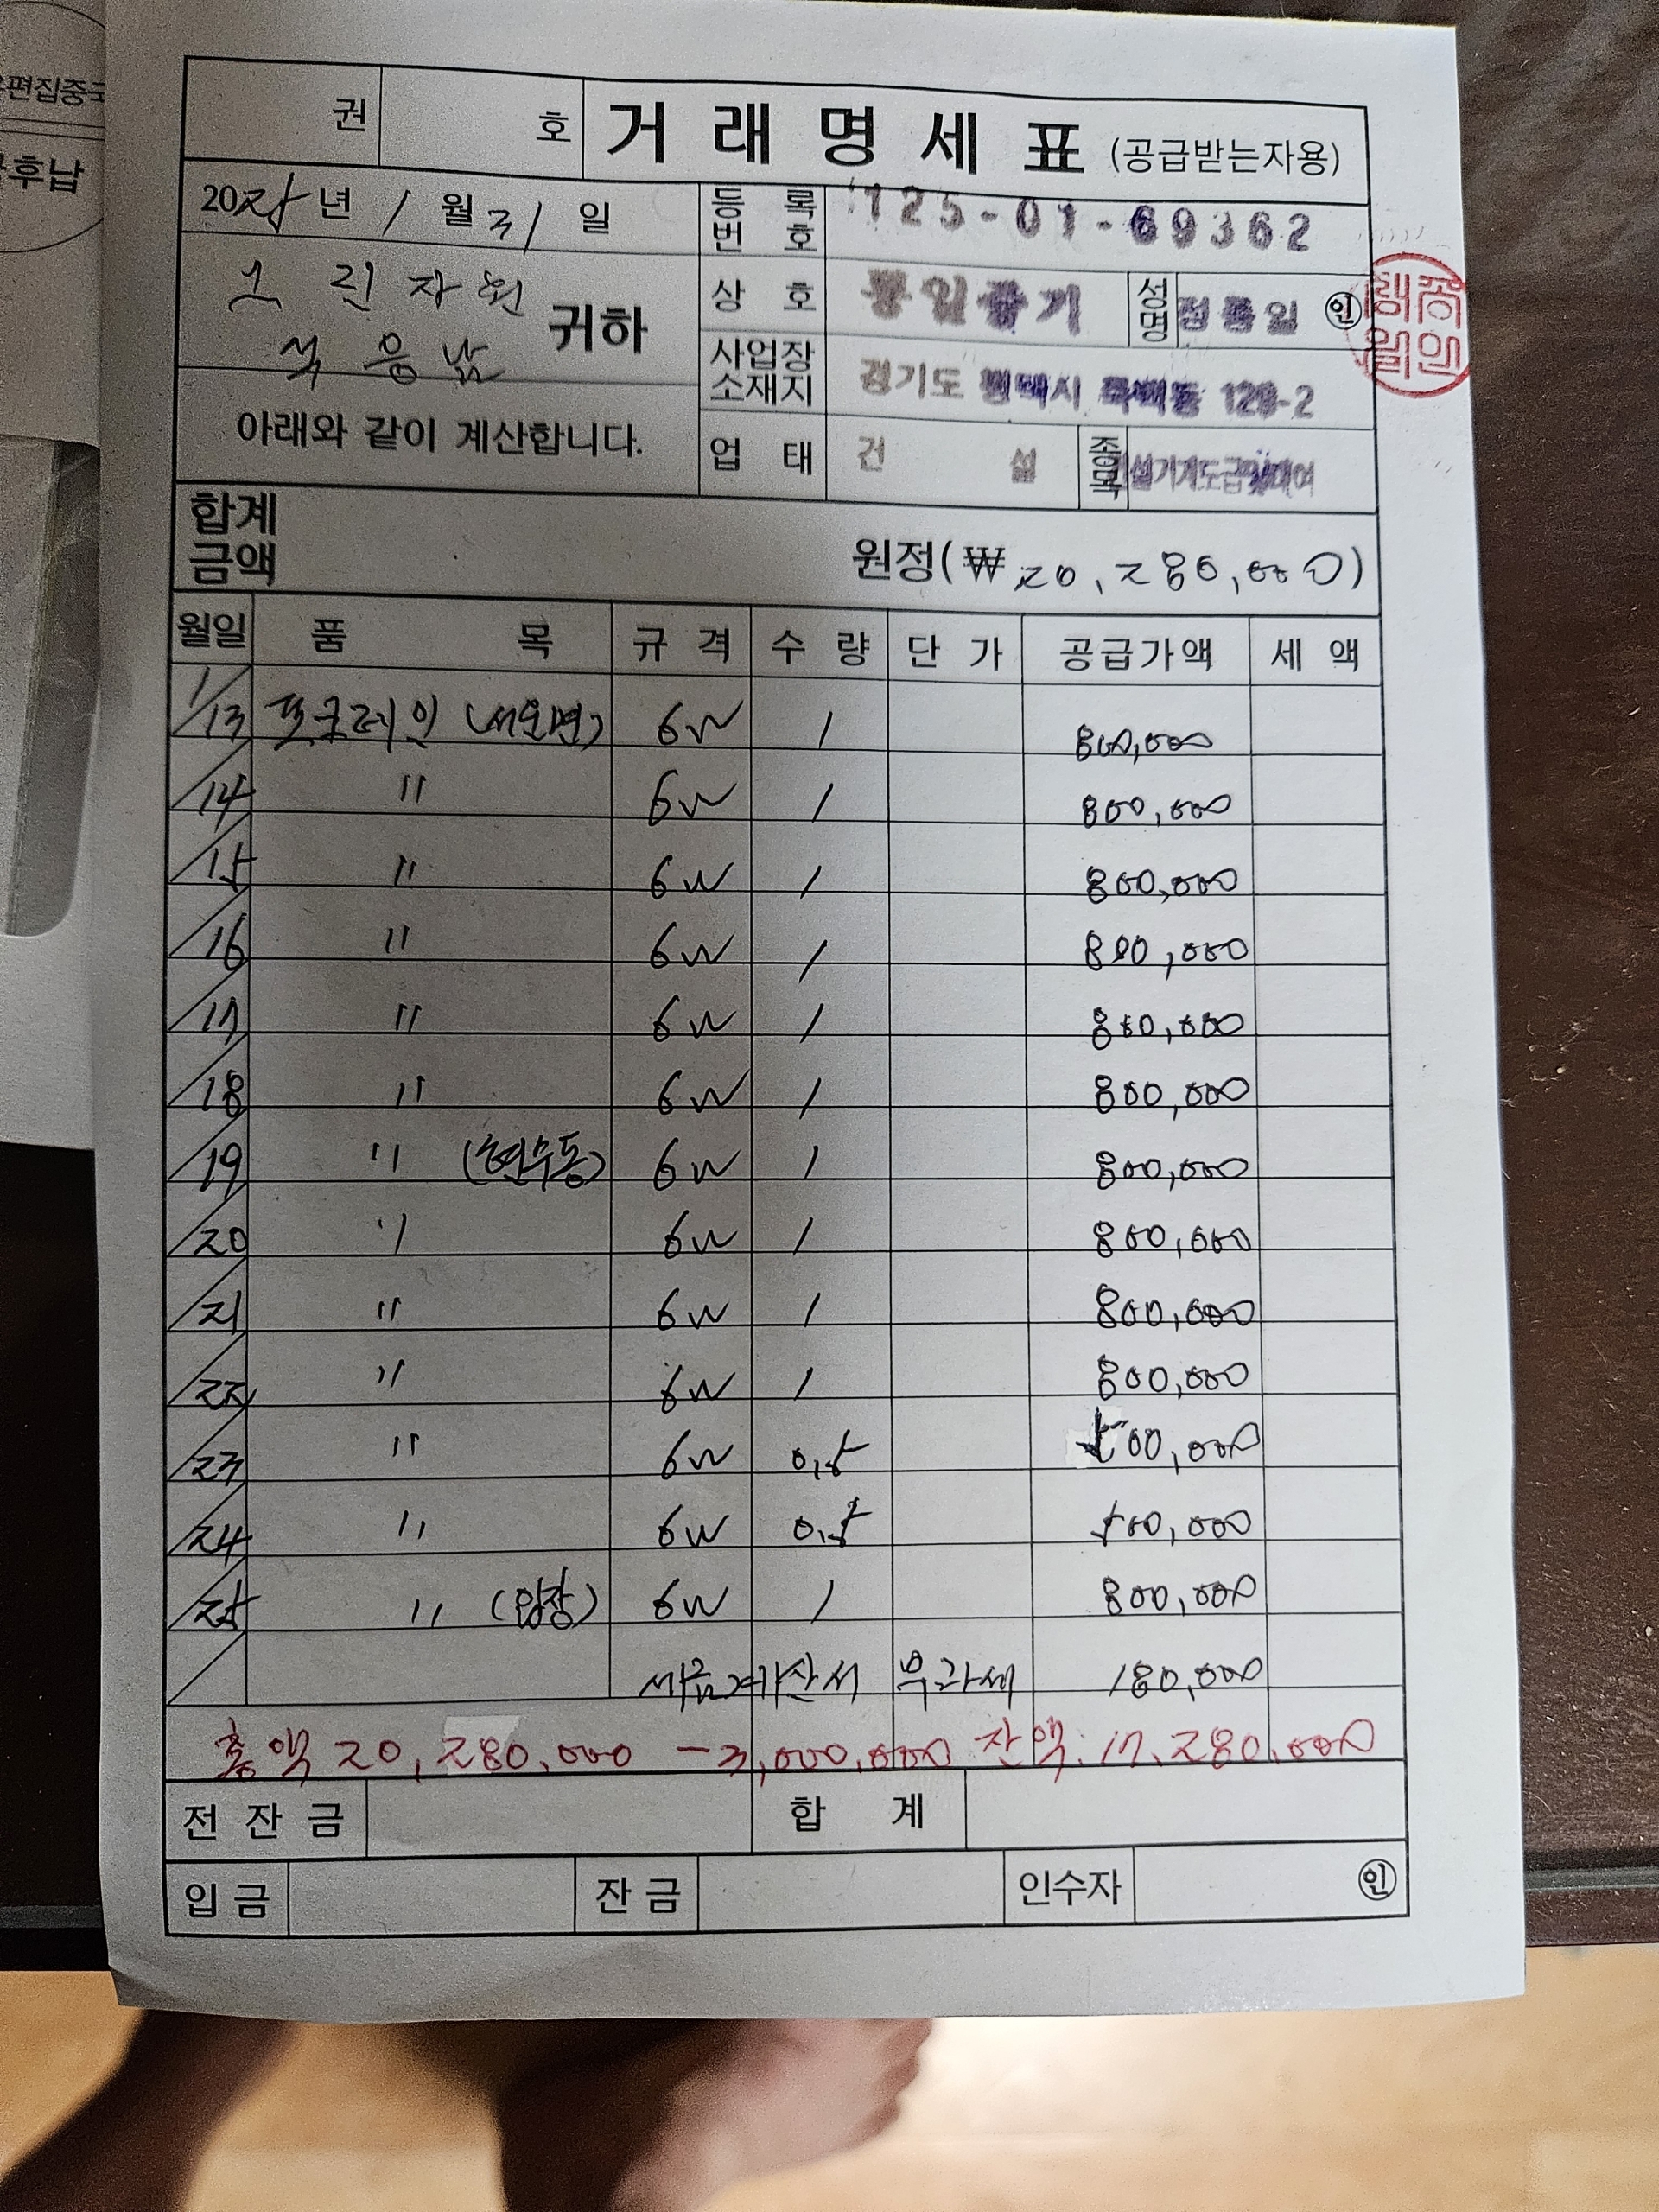 편집중국
후납
권 호 거래명세표 (공급받는자용)
2025년 1월 31일
등록번호 125-01-69362
그린자원
석응남 귀하
상호 통일중기 성명 정통일 ㊞
사업장소재지 경기도 평택시 128-2
아래와 같이 계산합니다.
업태 건설 종목 건설기계도급및대여
합계금액 원정(₩20,280,000)
월일 품목 규격 수량 단가 공급가액 세액
1/13 포크레인 (서운면) 6W 1 800,000
/14 〃 6W 1 800,000
/15 〃 6W 1 800,000
/16 〃 6W 1 800,000
/17 〃 6W 1 800,000
/18 〃 6W 1 800,000
/19 〃 (현수동) 6W 1 800,000
/20 〃 6W 1 800,000
/21 〃 6W 1 800,000
/22 〃 6W 1 800,000
/23 〃 6W 0.5 500,000
/24 〃 6W 0.5 500,000
/25 〃 (입장) 6W 1 800,000
세금계산서 부과세 180,000
총액 20,280,000 -3,000,000 잔액. 17,280,000
전잔금 합계
입금 잔금 인수자 ㊞